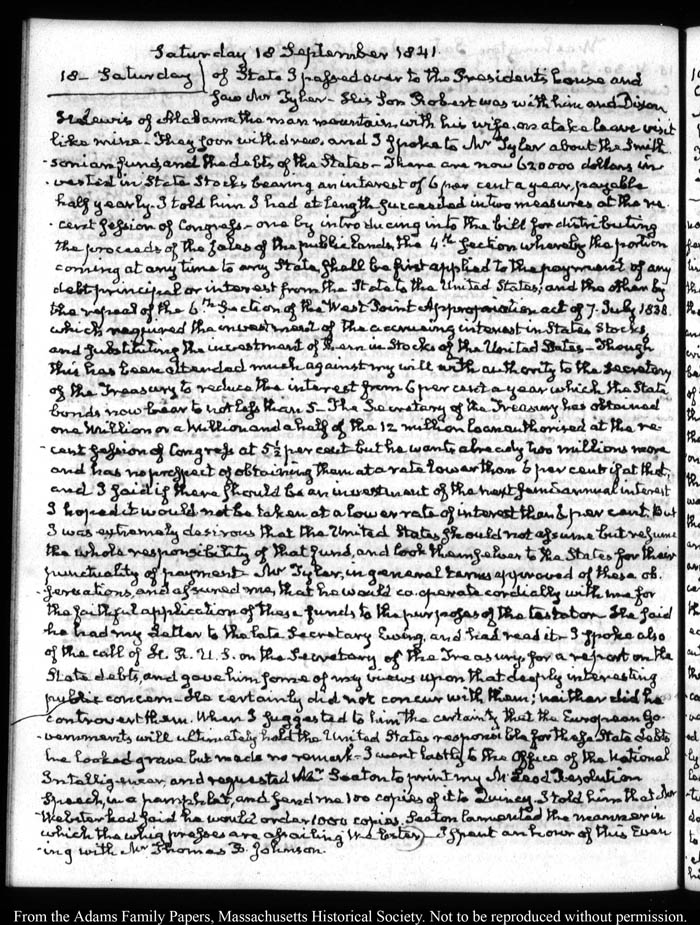 Saturday 18 September 1841.
18 – Saturday of State I passed over to the President's house and
saw Mr Tyler – His Son Robert was with him and Dixon
H. Lewis of Alabama the man mountain, with his wife, on a take leave visit
like mine – They soon withdrew, and I spoke to Mr Tyler about the Smith-
-sonian fund, and the debts of the States – There are now 620000 dollars in-
-vested in State Stocks bearing an interest of 6 per cent a year, payable
half yearly. I told him I had at length succeeded in two measures at the re-
-cent session of Congress – one by introducing into the bill for distributing
the proceeds of the sales of the public lands, the 4th Section whereby the portion
coming at any time to any State, shall be first applied to the payment of any
debt principal or interest from the State to the United States; and the other by
the repeal of the 6th Section of the West Point Appropriation act of 7. July 1838.
which required the investment of the accruing interest in States Stocks,
and substituting the investment of them in Stocks of the United States – Though
this has been attended much against my will with authority to the Secretary
of the Treasury to reduce the interest from 6 per cent a year which the State
bonds now bear to not less than 5 – The Secretary of the Treasury has obtained
one Million or a Million and a half of the 12 million loan authorised at the re-
-cent session of Congress at 5½ per cent but he wants already two millions more
and has no prospect of obtaining them at a rate lower than 6 per cent if at that,
and I said if there should be an investment of the next semi annual interest
I hoped it would not be taken at a lower rate of interest than 6 per cent. But
I was extremely desirous that the United States should not assume but resume
the whole responsibility of that fund, and look themselves to the States for their
punctuality of payment – Mr Tyler, in general terms approved of these ob-
-servations, and assured me, that he would co-operate cordially with me for
the faithful application of these funds to the purposes of the testator – He said
he had my Letter to the late Secretary Ewing, and had read it – I spoke also
of the call of H. R. U. S. on the Secretary of the Treasury for a report on the
State debts, and gave him some of my views upon that deeply interesting
public concern – He certainly did not concur with them; neither did he
controvert them. When I suggested to him the certainty that the European Go-
-vernments will ultimately hold the United States responsible for these State debts
he looked grave but made no remark – I went lastly to the Office of the National
Intelligencer, and requested Mr Seaton to print my McLeod Resolution
Speech, in a pamphlet, and send me 100 copies of it to Quincy. I told him that Mr
Webster had said he would order 1000 copies. Seaton lamented the manner in
which the whig presses are assailing Webster – I spent an hour of this Even-
-ing with Mr Thomas B. Johnson.
From the Adams Family Papers, Massachusetts Historical Society. Not to be reproduced without permission.